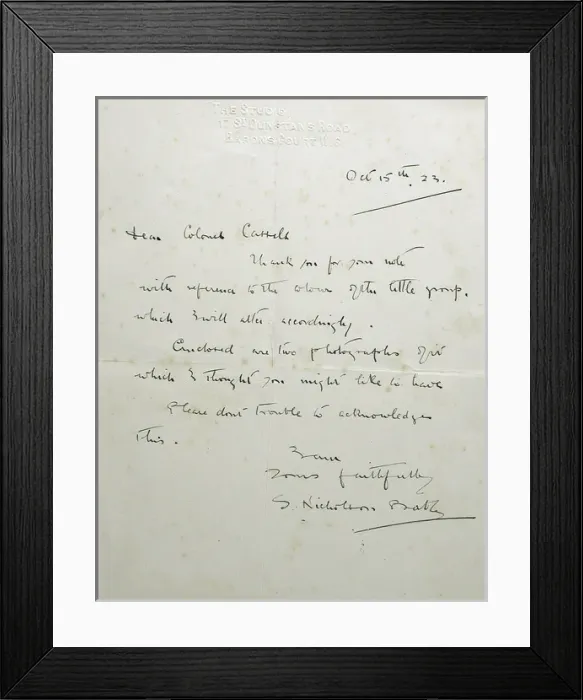 THE STUDIO,
17 ST DUNSTANS ROAD,
BARONS COURT W.6
Oct 15th. 23.
Dear Colonel Cassells
Thank you for your note
with reference to the colour of the little group,
which I will alter accordingly.
Enclosed are two photographs of it
which I thought you might like to have
Please dont trouble to acknowledge
this.
I am
Yours faithfully
S. Nicholson Babb